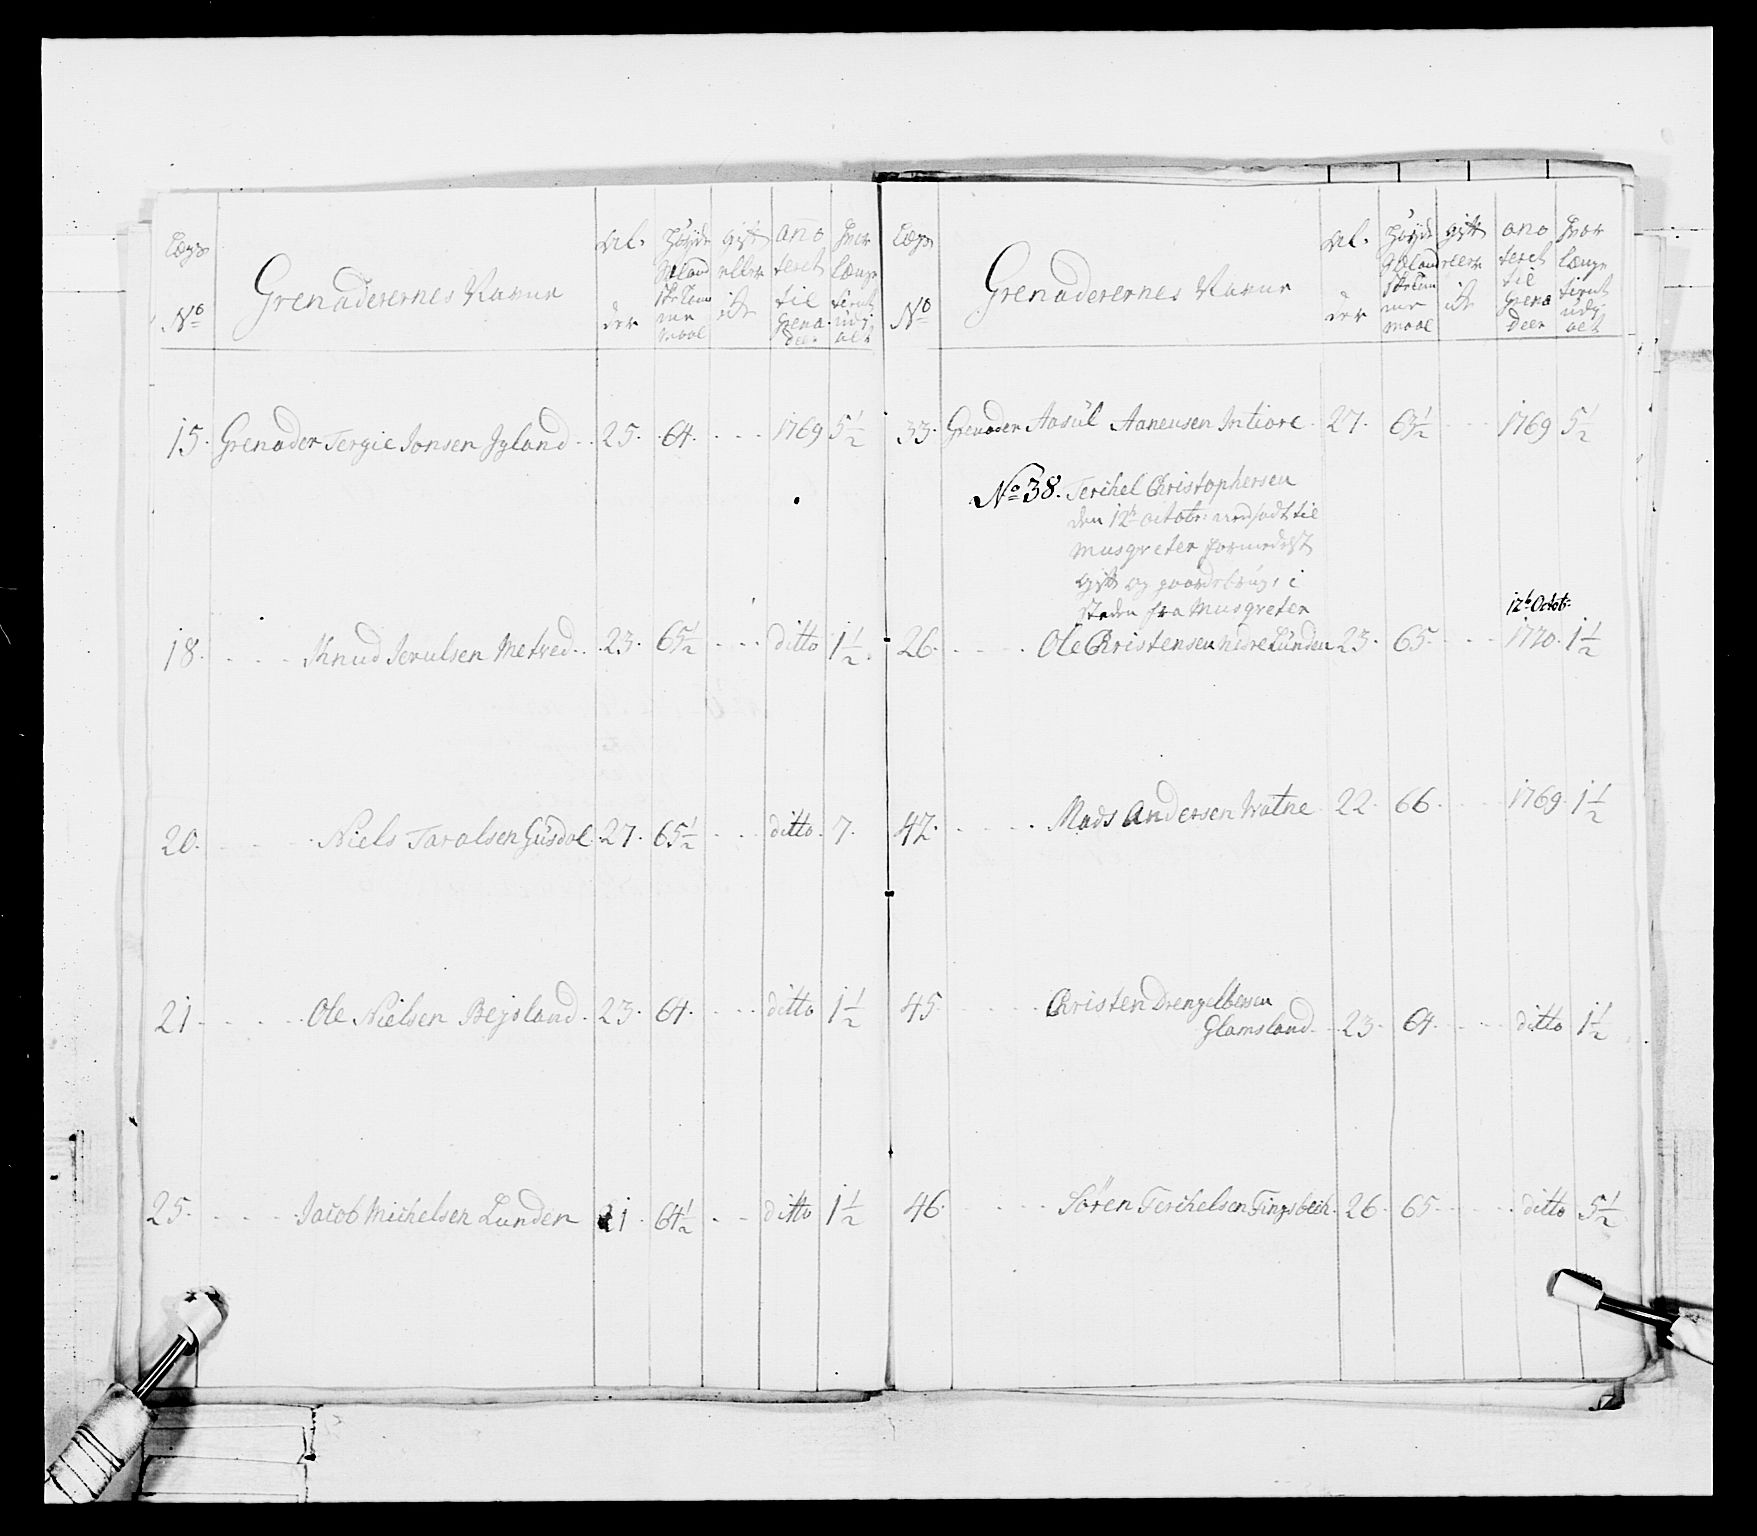 Lægs No
Grenaderernes Navne
Al- der
Høyde
gift eller ik
ano teret til Grena deer
hvor længe tient udj alt
15. Grenader Tergie Jonsen Jgland 25. 64. 1769 5 1/2
18. Knud Jerulsen Metved 23. 65 1/2 ditto 1 1/2
20. Niels Taralsen Gusdal 27. 65 1/2 ditto 7.
21. Ole Nielsen Bejsland 23. 64. ditto 1 1/2
25. Jacob Michelsen Lunden 21. 64 1/2 ditto 1 1/2
Lægs No
Grenaderernes Navne
Al- der
Høyde
gift eller ik
ano teret til Grena deer
hvor længe tient udj alt
33. Grenader Aasül Aanensen Intiore 27. 63 1/2 1769 5 1/2
No 38. Terchel Christophersen
den 12te octobr: nedsadt til
Musqveter formedelst
gift og gaardsbrug, i
steden fra Musqveter
12te Octobr:
26. Ole Christensen nedre Lunden 23. 65. 1770. 1 1/2
42. Mads Andersen Watne 22. 66. 1769. 1 1/2
45. Christen Drengelbersen
Glamsland 23. 64. ditto 1 1/2
46. Sören Terchelsen Tingsbech. 26. 65. ditto 5 1/2